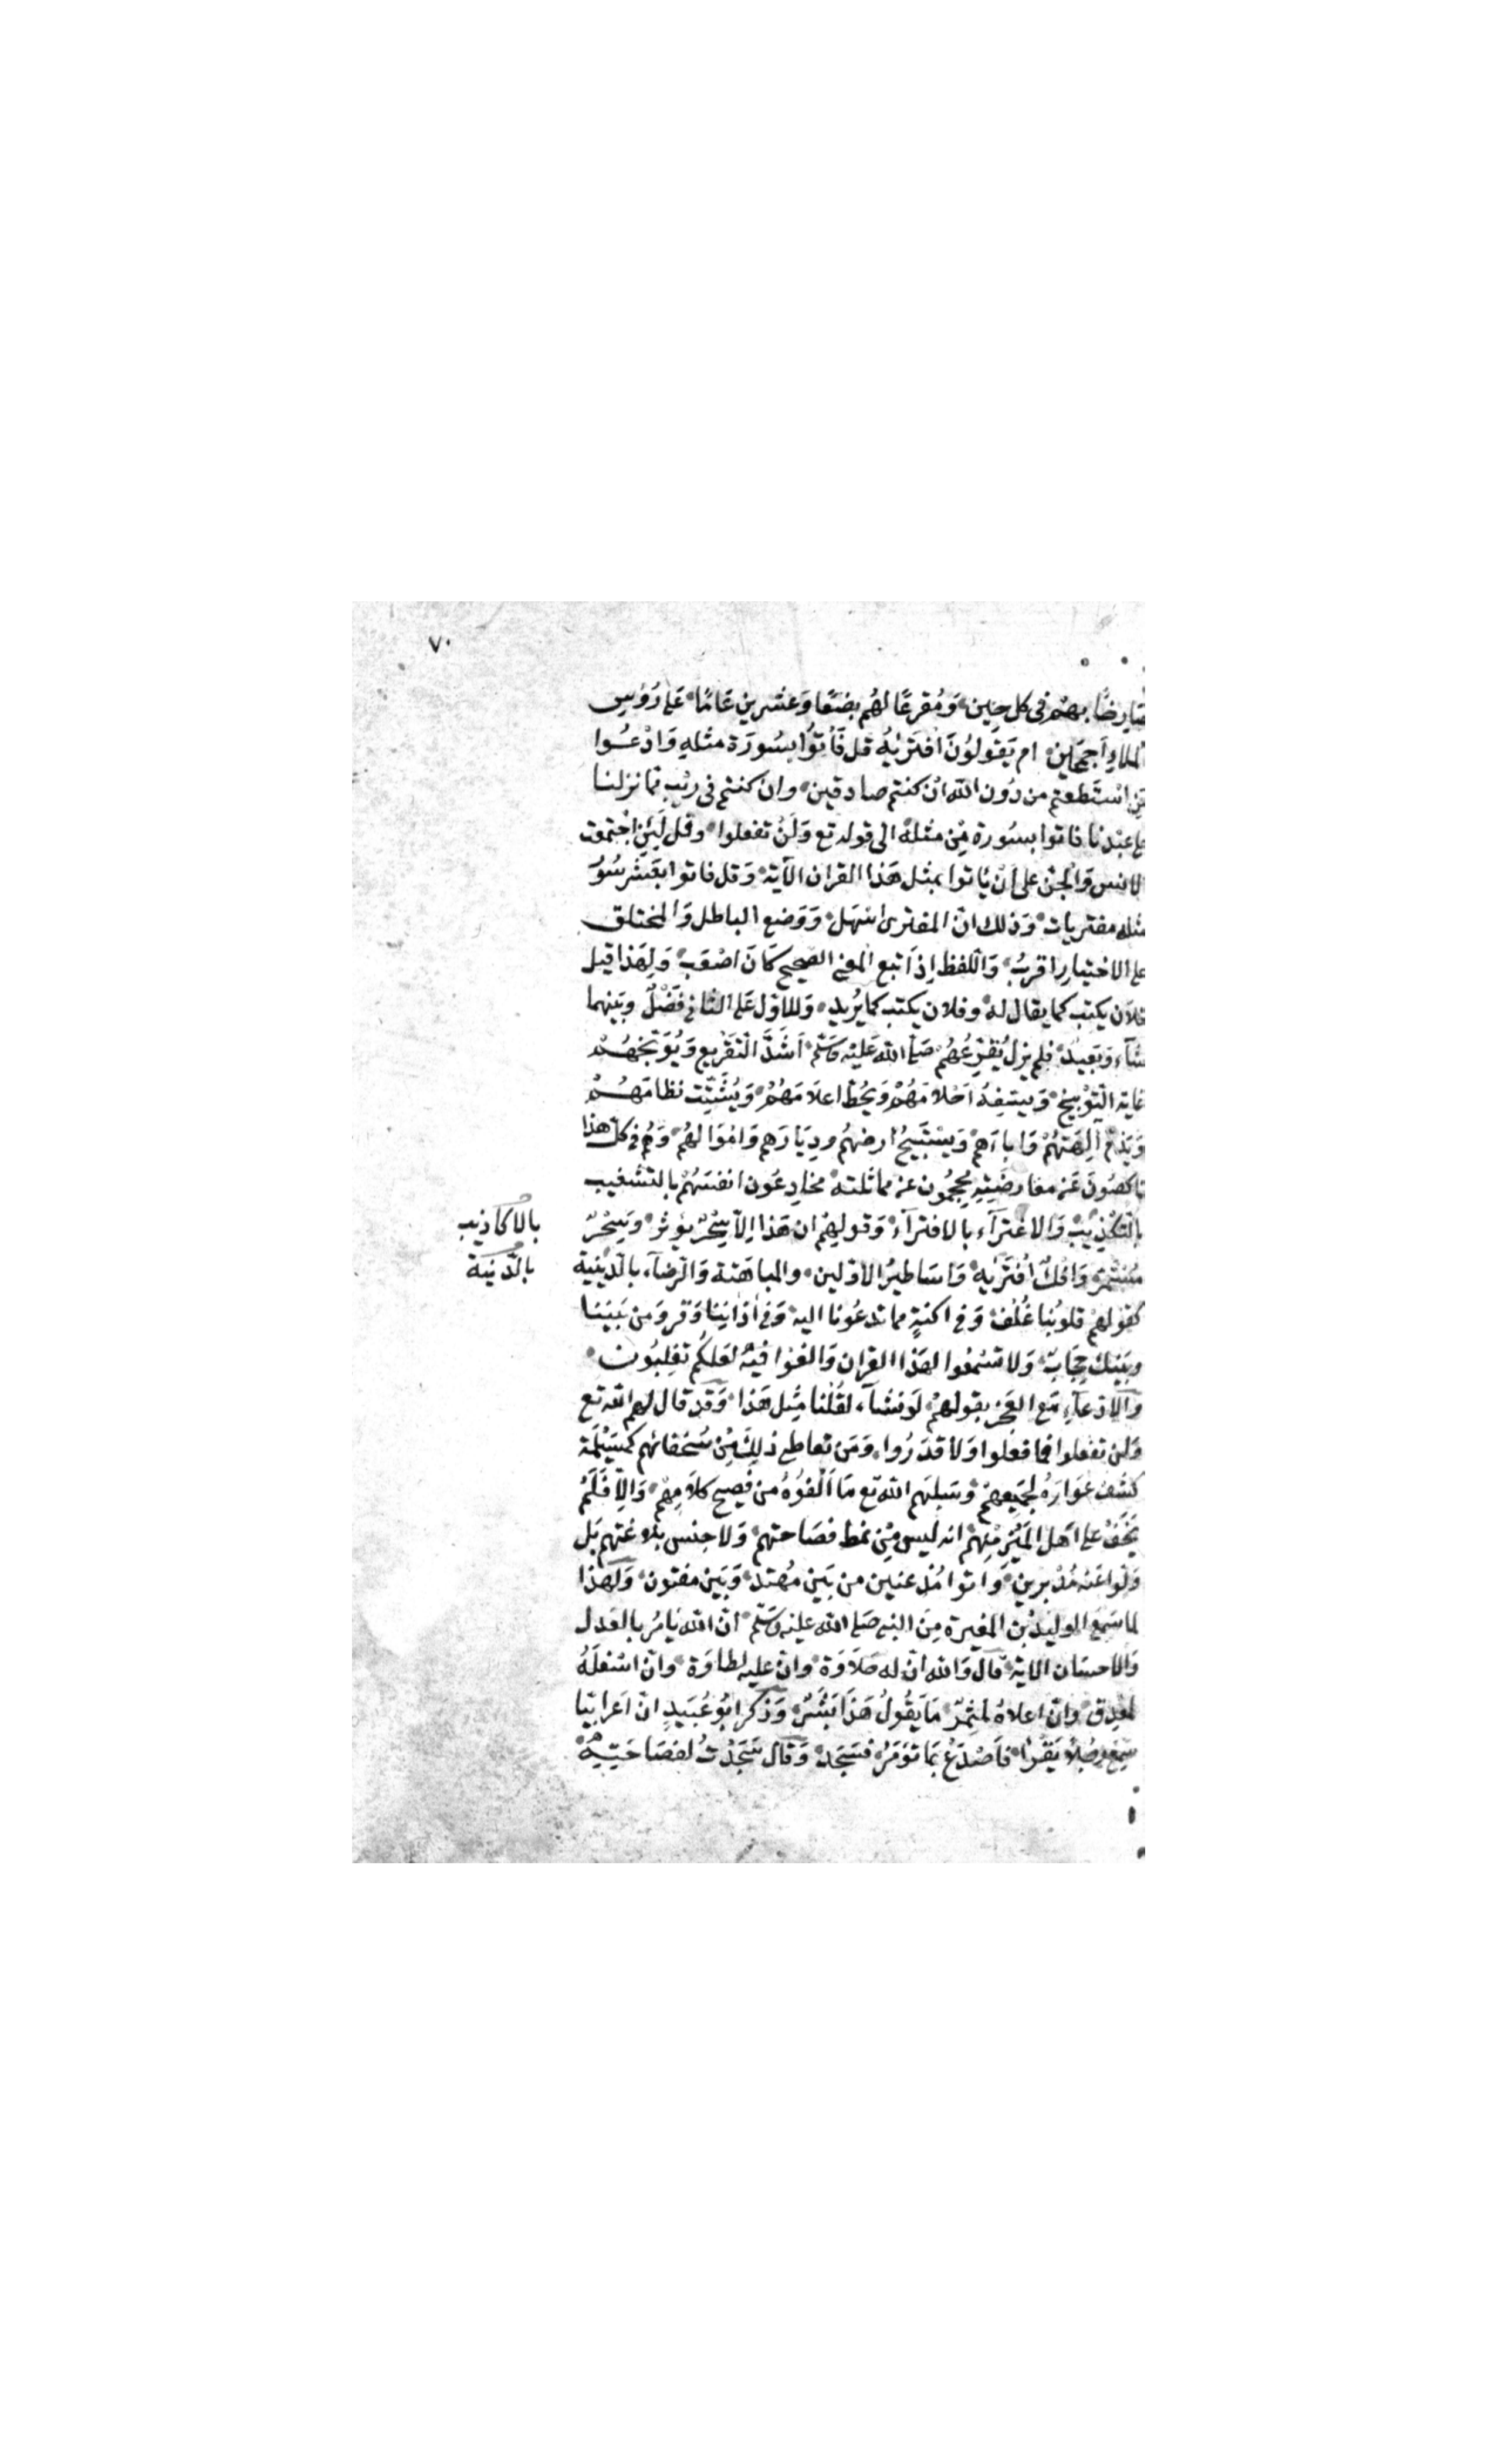 ٧٠
صارخًا بهم في كل حين وَمُقرعًا لهُم بضعًا وَعشرين عَامًا عَلى رُؤسِ
الملاءِ اَجمعَين ام يَقولوُنَ افتَريٰهُ قل فَأتوُا بسُورَة مثلهِ وَادْعُوا
مَن استَطعتم من دُون الله ان كنتم صادقين وان كنتم في رَيب مما نزلنا
على عَبْدنا فاتوا بسُورة مِن مثله الى قوله تع وَلَنْ تفعلوا وقل لَئِن اجتمعت
الانس وَالجن على اَنْ يَاتوا بمثل هَذا القران الآية وَقل فاتوا بعَشر سُوَر
مثله مفتريات وَذلك انّ المفترى اسْهَل وَوَضع الباطل وَالمختلق
على الاختيارِ اقربُ وَاللفظ اِذ اتبع المعنى الصحيح كَانَ اصْعَب وَلِهَذا قيل
فلان يكتب كما يقال له وفلان يكتب كما يُريد وَللاوّل عَلى الثاني فَضْلٌ وبَينهما
شَاَء وَبَعيد فلم يزل يُقَرِّعُهُم صَلى الله عَليْه وَسَلّم اَشَدَّ التَقْريع وَيُوَبّخهُمْ
غاية التَّوْبيخ وَيسَفِهُ اَحْلامَهُمْ وَيَحُطّ اعلامَهُمْ وَيُشَتِّت نظامَهُمْ
وَيَذمّ آلِهَتَهُمْ وَاباءَهم وَيَسْتَبيحُ ارضهُم ودِيَارَهم وَامْوَالَهُم وَهُم في كلّ هذا
ناكصُونَ عَن معَارضَتِهِ مُحجِمُون عن مماثلته مخادِعُون انفسَهُمْ بالتَشغيب
بالتكذيْبِ وَالاغترآء بالافترآء وَقولِهم ان هَذا اِلاّ سِحْرٌ يؤثر وَسِحْرٌ
بالاكاذيب
مُسْتمرّ وَافكٌ افتَريٰه وَاسَاطيرُ الاوّلين والمباهَتة وَالرّضآء بالدّنيّة
بالدّنيّة
كقولهمْ قلوُبُنا غُلْف وَفى اكنةٍ مما تدعُونا اليه وَفى آذاننا وَقر وَمن بَيننا
وبَينك حجَاب وَلا تسْمعُوا لهَذا القران وَالغوا فيهِ لعَلكُم تغلِبُون
وَالادّعآءِ مَع العَجْز بقولهمْ لَونشآء لقُلْنا مِثل هَذا وَقَد قال لهم الله تع
وَلن تفعلوا فما فعلوا وَلا قدَرُوا وَمَن تعاطى ذلكَ مِن سُخفائهم كمسَيْلَمَة
كَشَف عوَارَهُ لجَميعِهمْ وسَلبَهم الله تع مَا اَلفُوهُ من فصيح كلامِهم وَاِلاّ فَلَمْ
يَخْفَ على اهل المَيْز مِنهم انه ليس مِن نمط فصَاحتهم وَلا جنس بلاغتهم بَل
وَلّوا عَنه مُدْبرين وَاَتوا مُذعنين من بَين مُهتد وَبَين مفتون وَلهذا
لما سَمعَ الوليدُ بن المغيرة مِنَ النبي صَلى الله عليْه وَسَلّم انّ الله يَامُر بالعَدل
وَالاحسَان الاية قَال وَالله انّ له حَلاوَة وانّ عليه لطلاوَة وانّ اسْفلَهُ
لمغدِق وانّ اعلاهُ لمثِمرٌ مَا يَقُولُ هَذا بَشَرٌ وَذكر ابُو عُبَيدٍ انّ اعرابيّا
سَمعَ رَجلاً يَقْرأ فاصْدَعْ بمَا تؤمَرُ فسَجَد وَقال سَجَدْتُ لفصَاحَتِهِ